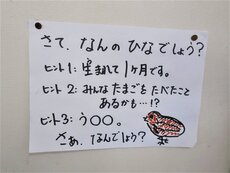 さて、なんのひなでしょう？
ヒント1: 生まれて1ヶ月です。
ヒント2: みんなたまごをたべたこと
あるかも…!?
ヒント3: う〇〇。
さあ、なんでしょう？